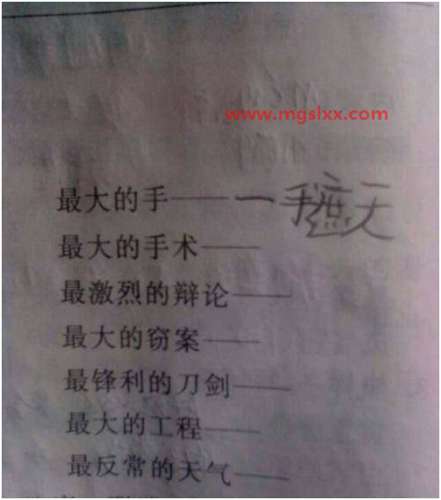 www.mgslxx.com
最大的手——一手遮天
最大的手术——
最激烈的辩论——
最大的窃案——
最锋利的刀剑——
最大的工程——
最反常的天气——